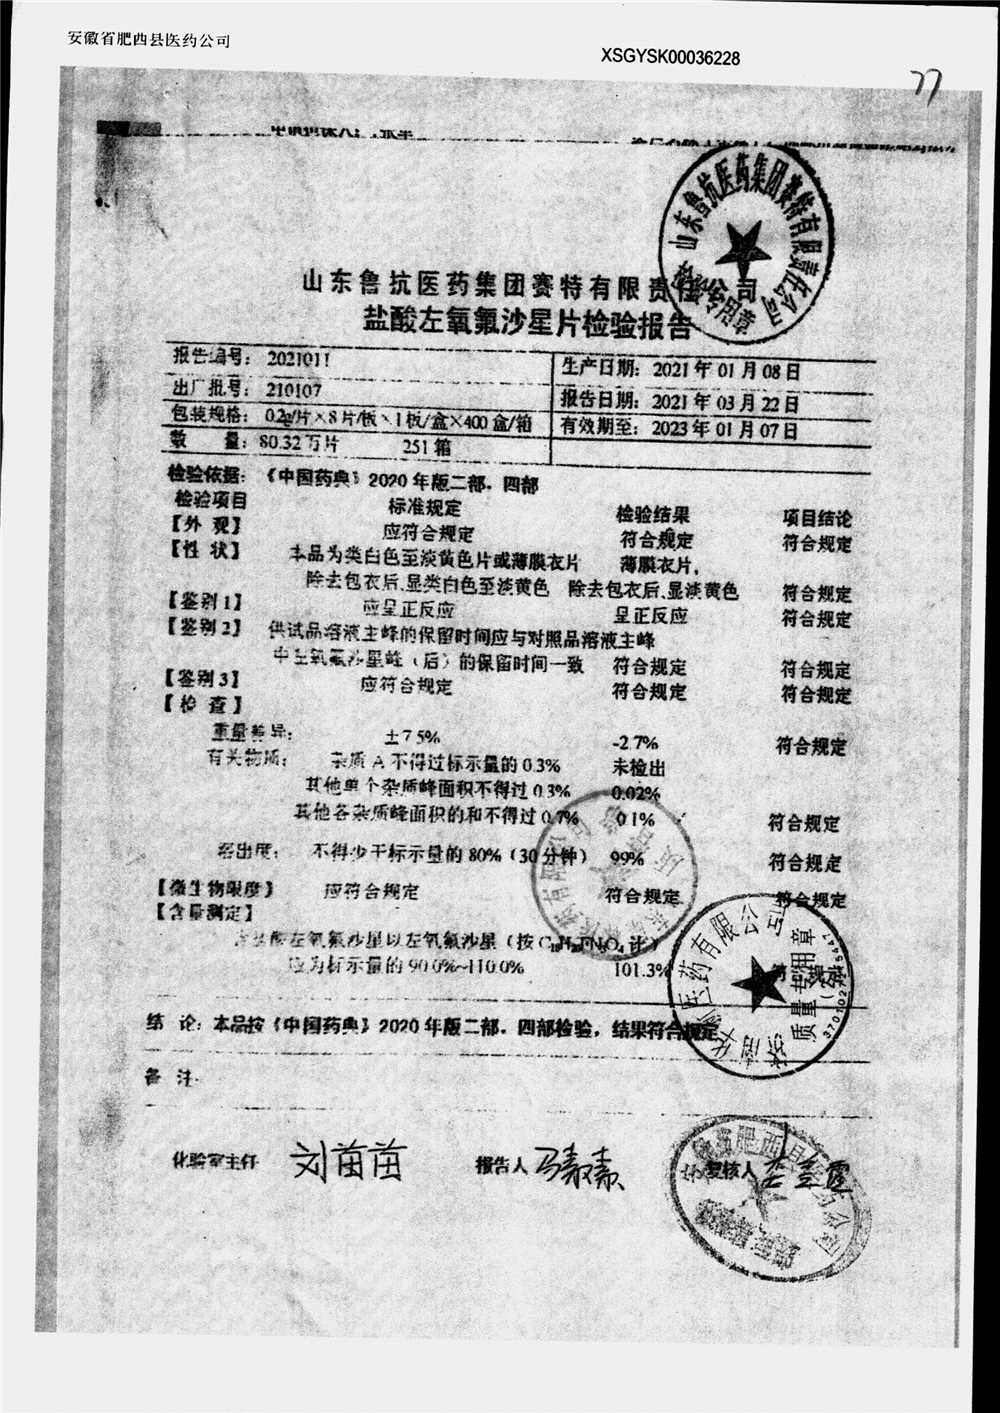 安徽省肥西县医药公司
XSGYSK00036228
77
山东鲁抗医药集团赛特有限责任公司
盐酸左氧氟沙星片检验报告
报告编号： 2021011
生产日期： 2021 年 01 月 08 日
出厂批号： 210107
报告日期： 2021 年 03 月 22 日
包装规格： 0.2g/片×8 片/板×1 板/盒×400 盒/箱
有效期至： 2023 年 01 月 07 日
数 量： 80.32 万片 251 箱
检验依据：《中国药典》2020 年版二部．四部
检验项目 标准规定 检验结果 项目结论
【外 观】 应符合规定 符合规定 符合规定
【性 状】 本品为类白色至淡黄色片或薄膜衣片 薄膜衣片，
除去包衣后,显类白色至淡黄色 除去包衣后,显淡黄色 符合规定
【鉴别 1】 应呈正反应 呈正反应 符合规定
【鉴别 2】 供试品溶液主峰的保留时间应与对照品溶液主峰
中左氧氟沙星峰（后）的保留时间一致 符合规定 符合规定
【鉴别 3】 应符合规定 符合规定 符合规定
【检 查】
重量差异： ±7.5% -2.7% 符合规定
有关物质： 杂质 A 不得过标示量的 0.3% 未检出
其他单个杂质峰面积不得过 0.3% 0.02%
其他各杂质峰面积的和不得过 0.7% 0.1% 符合规定
溶出度： 不得少于标示量的 80%（30 分钟） 99% 符合规定
【微生物限度】 应符合规定 符合规定 符合规定
【含量测定】
含盐酸左氧氟沙星以左氧氟沙星（按 C₁₈H₂₀FN₃O₄ 计）
应为标示量的 90.0%~110.0% 101.3% 符合规定
结 论：本品按《中国药典》2020 年版二部．四部检验，结果符合规定
备 注：
化验室主任 刘苗苗 报告人 马素素 复核人
山东鲁抗医药集团赛特有限责任公司
专用章
医药有限公司
质量专用章